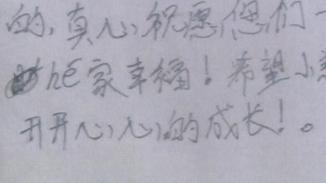 的,真心祝愿,您们一
he家幸福!希望小
开开心心的成长!。